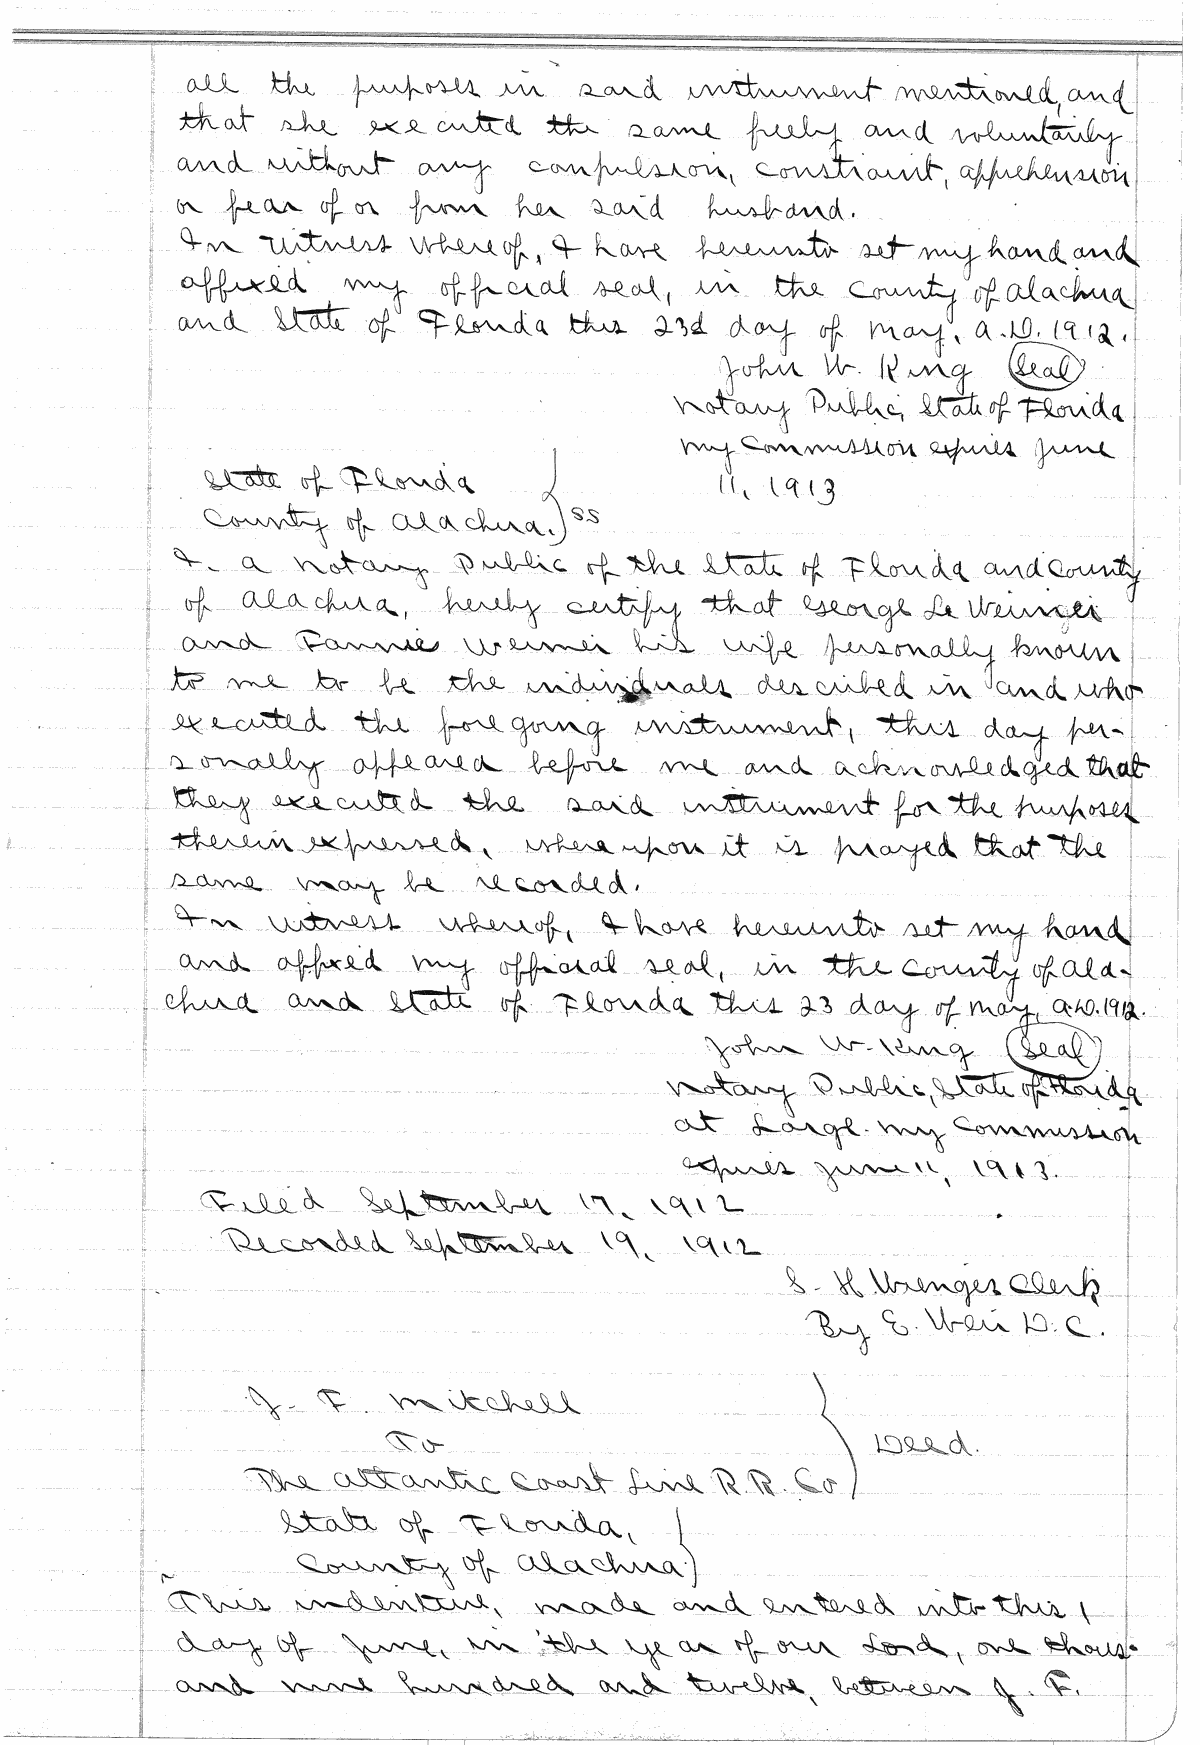 all the purposes in said instrument mentioned, and
that she executed the same freely and voluntarily
and without any conpulsion, constraint, apprehension
or fear of or from her said husband.
In witness whereof, I have hereunto set my hand and
affixed my official seal, in the county of Alachua
and State of Florida this 23d day of May, A.D. 1912.
John W. King (Seal)
Notary Public, State of Florida
My Commission expires June
11, 1913
State of Florida
County of Alachua. } ss
I. a Notary Public of the State of Florida and County
of Alachua, hereby certify that George Le
and Fannie Weimer his wife personally known
to me to be the individuals described in and who
executed the foregoing instrument, this day per-
sonally appeared before me and acknowledged that
they executed the said instrument for the purposes
therein expressed, whereupon it is prayed that the
same may be recorded.
In witness whereof, I have hereunto set my hand
and affixed my official seal, in the County of Ala-
chua and State of Florida this 23 day of May, A.D. 1912.
John W. King (Seal)
Notary Public, State of Florida
at Large. My Commission
expires June 11, 1913.
Filed September 17, 1912
Recorded September 19, 1912
S. H. Wienges Clerk
By E. D. C.
J. F. Mitchell
To } Deed.
The Atlantic Coast Line R.R. Co
State of Florida,
County of Alachua }
This indenture, made and entered into this 1
day of June, in the year of our Lord, one thous-
and nine hundred and twelve, between J. F.